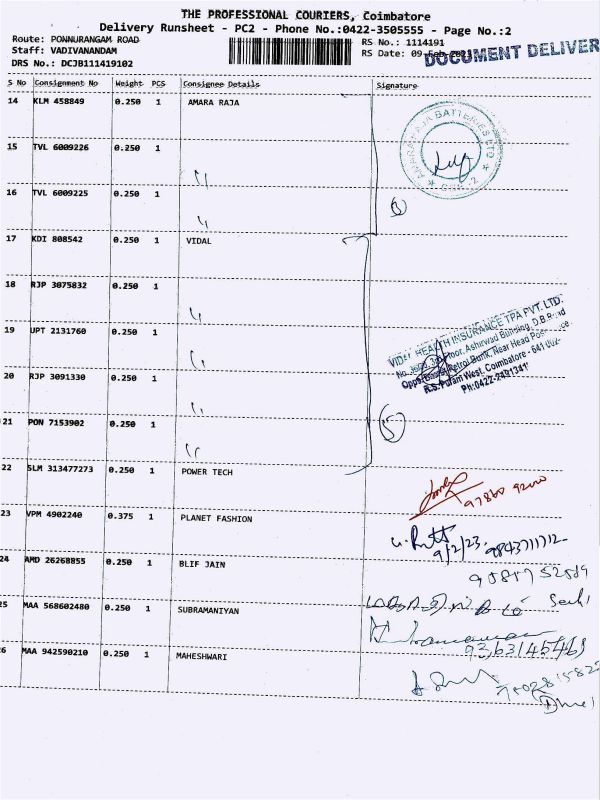 THE PROFESSIONAL COURIERS, Coimbatore
Delivery Runsheet - PC2 - Phone No.:0422-3505555 - Page No.:2
Route: PONNURANGAM ROAD
RS No.: 1114191
Staff: VADIVANANDAM
RS Date: 09-Feb-2023
DOCUMENT DELIVER
DRS No.: DCJB111419102
S No Consignment No Weight PCS Consignee Details Signature
14 KLM 458849 0.250 1 AMARA RAJA
AMARA RAJA BATTERIES LTD
15 TVL 6009226 0.250 1 〃
16 TVL 6009225 0.250 1 〃
3
17 KDI 808542 0.250 1 VIDAL
18 RJP 3075832 0.250 1 〃
VIDAL HEALTH INSURANCE TPA PVT. LTD.
Floor, Ashirwad Building, D.B.Road
19 UPT 2131760 0.250 1 〃
Petrol Bunk, Near Head Post
R.S.Puram West, Coimbatore - 641 002
Ph:0422-2491341
20 RJP 3091330 0.250 1 〃
21 PON 7153902 0.250 1 〃
5
22 SLM 313477273 0.250 1 POWER TECH
97860 92000
23 VPM 4902240 0.375 1 PLANET FASHION
9/2/23, 9843711712
24 AMD 26268855 0.250 1 BLIF JAIN
25 MAA 568602480 0.250 1 SUBRAMANIYAN
9363145469
26 MAA 942590210 0.250 1 MAHESHWARI